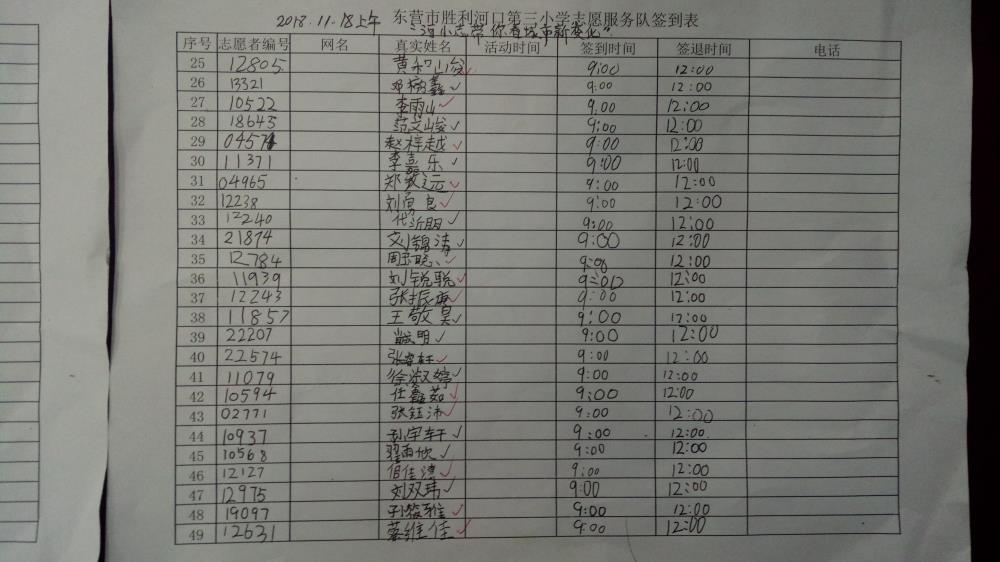 2018.11.18上午 东营市胜利河口第三小学志愿服务队签到表
"河小志带你看城市新变化"
序号 志愿者编号 网名 真实姓名 活动时间 签到时间 签退时间 电话
25 12805 黄和 9:00 12:00
26 13321 邓 鑫 9:00 12:00
27 10522 李雨山 9:00 12:00
28 18643 范文峻 9:00 12:00
29 0457 赵梓越 9:00 12:00
30 11371 李嘉乐 9:00 12:00
31 04965 郑 远 9:00 12:00
32 12238 刘 9:00 12:00
33 12240 代沂 9:00 12:00
34 21874 刘锦涛 9:00 12:00
35 12784 周 晓 9:00 12:00
36 11939 刘锐聪 9:00 12:00
37 12243 张振 9:00 12:00
38 11857 王敬昊 9:00 12:00
39 22207 明 9:00 12:00
40 22574 张 轩 9:00 12:00
41 11079 徐淑婷 9:00 12:00
42 10594 任鑫茹 9:00 12:00
43 02771 张钰沛 9:00 12:00
44 10937 孙宇轩 9:00 12:00
45 10568 翟雨欣 9:00 12:00
46 12127 佳 9:00 12:00
47 12975 刘双玮 9:00 12:00
48 19097 孙筱雅 9:00 12:00
49 12631 维佳 9:00 12:00